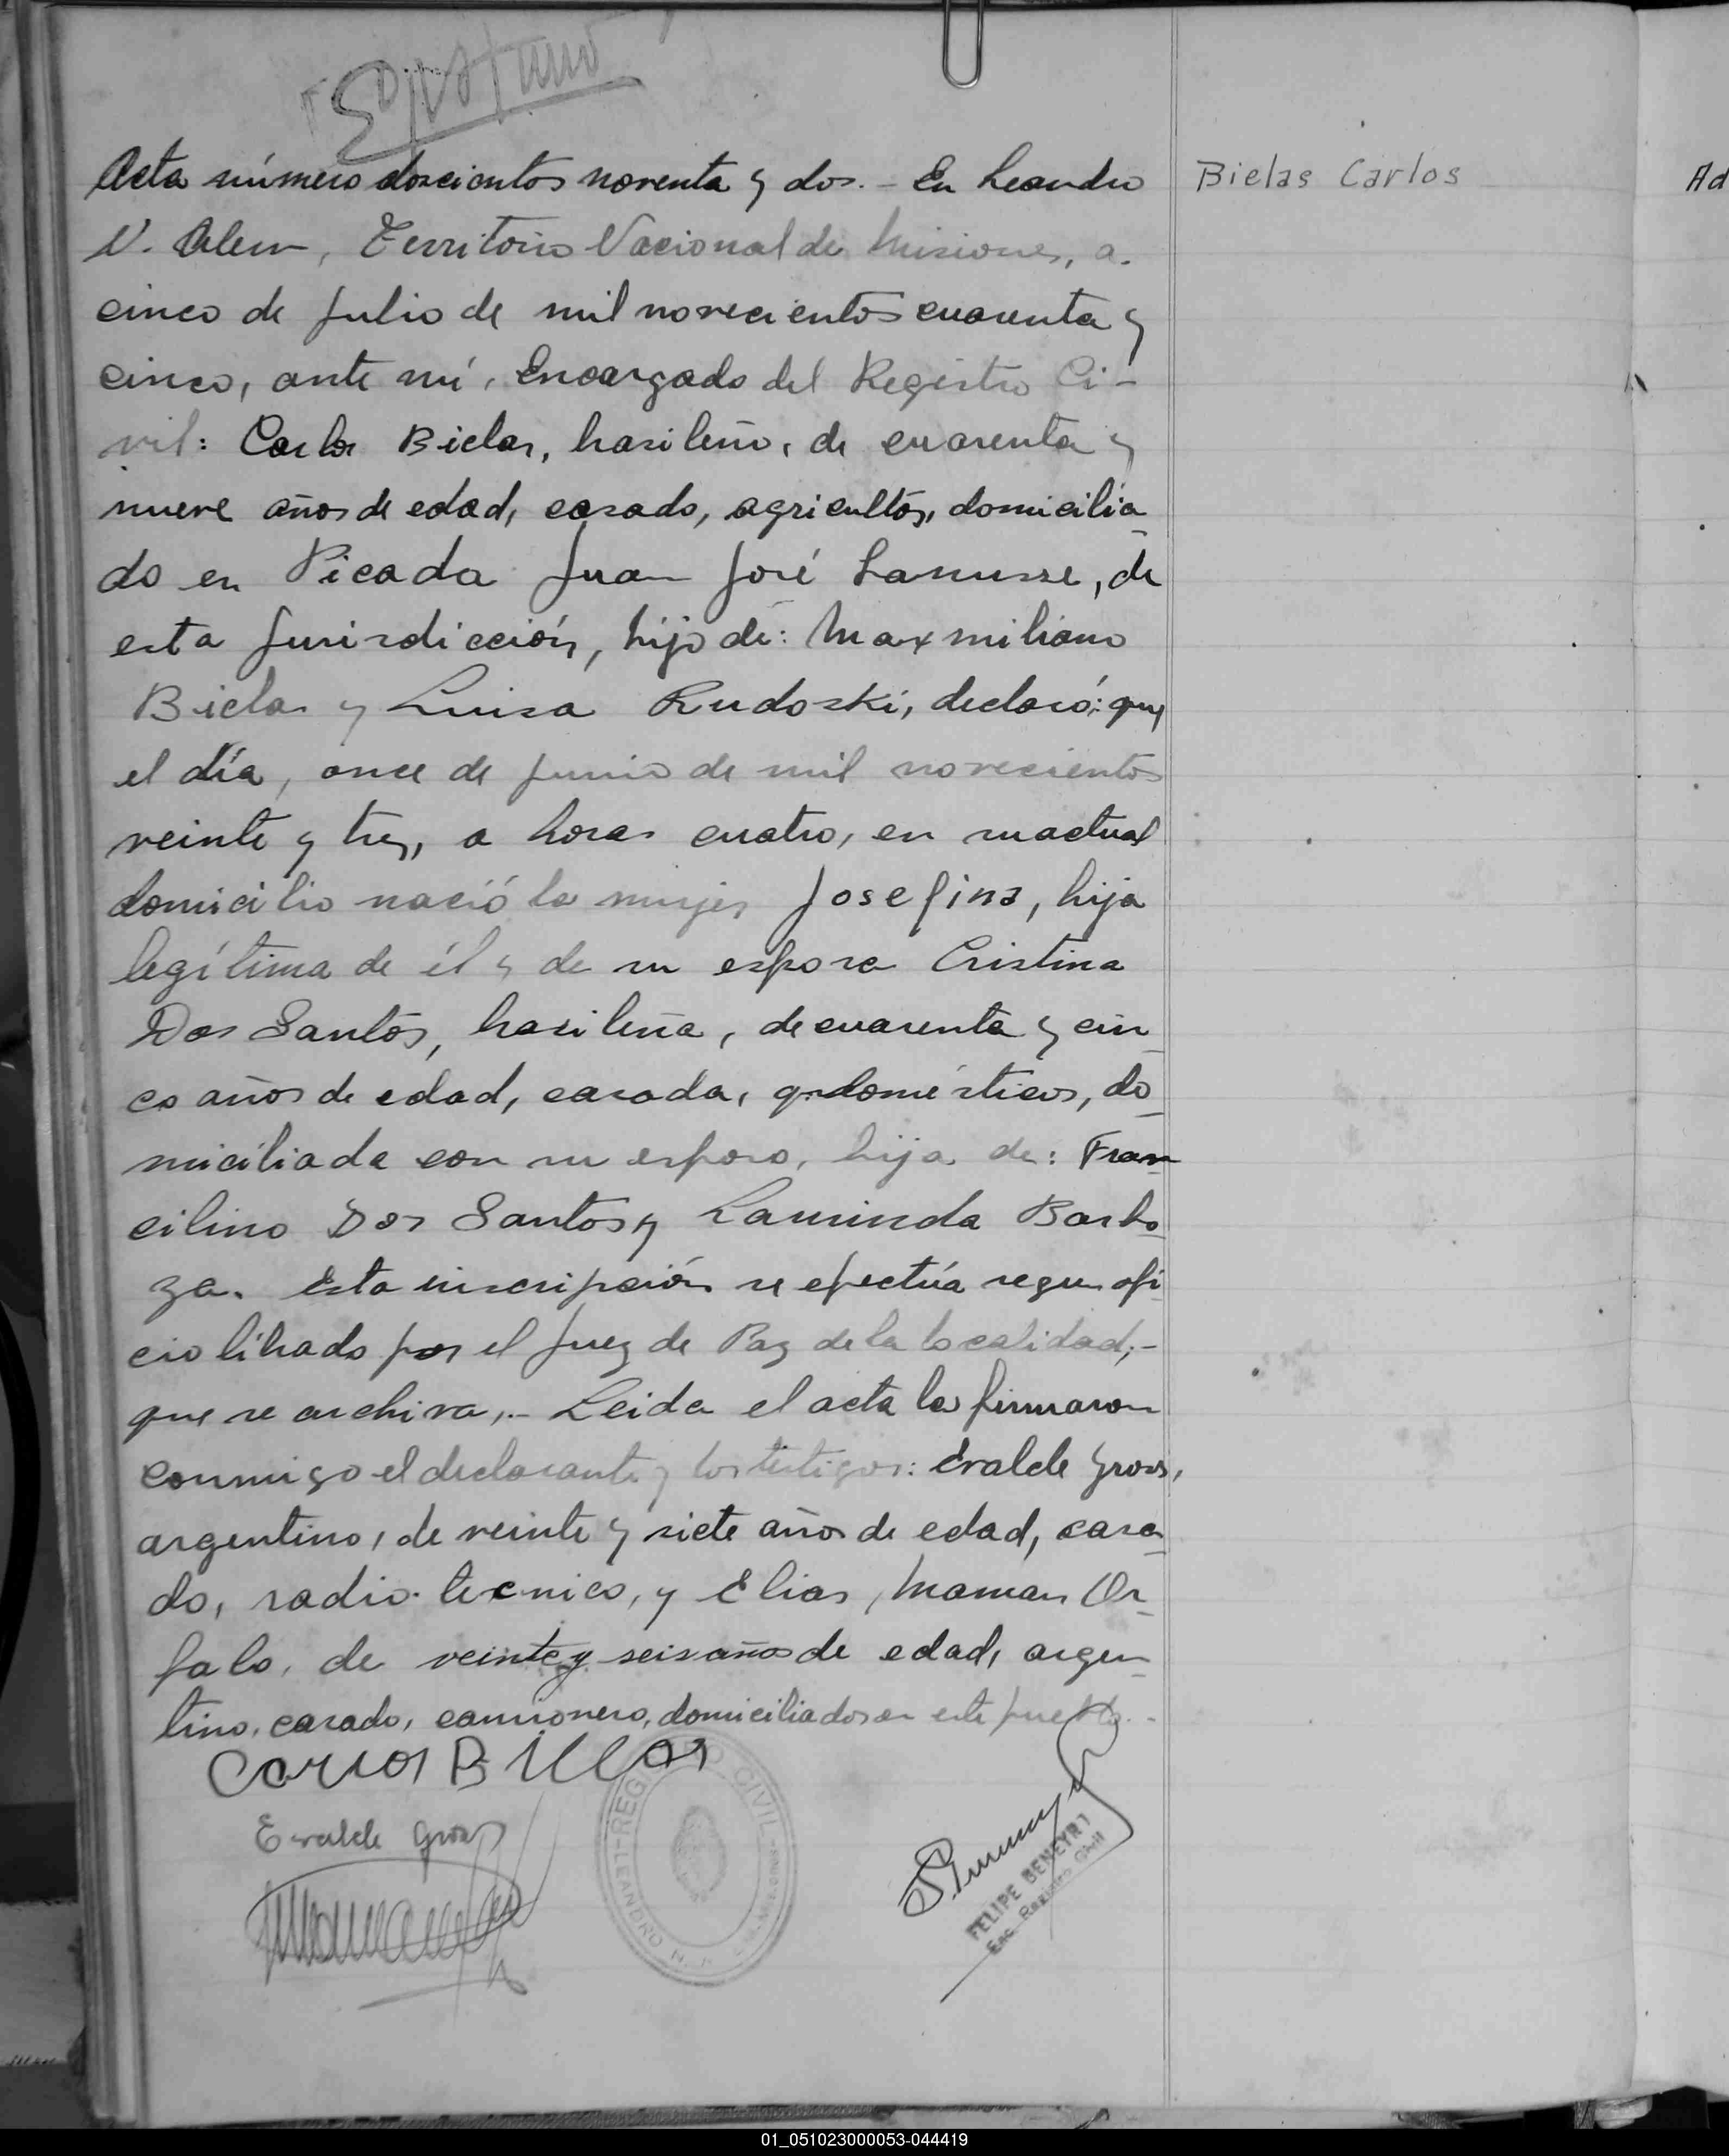 Acta número doscientos noventa y dos.- En Leandro
N. Alem, Territorio Nacional de Misiones, a
cinco de Julio de mil novecientos cuarenta y
cinco, ante mí, Encargado del Registro Ci-
vil: Carlos Bielas, brasileño, de cuarenta y
nueve años de edad, casado, agricultor, domicilia
do en Picada Juan José Lanusse, de
esta Jurisdicción, hijo de: Maxmiliano
Bielas y Luisa Rudoski, declaró: que
el día, once de Junio de mil novecientos
veinte y tres, a horas cuatro, en su actual
domicilio nació la mujer Josefina, hija
legítima de él y de su esposa Cristina
Dos Santos, brasileña, de cuarenta y cin
co años de edad, casada, q. domésticos, do
miciliada con su esposo, hija de: Fran
cilino Dos Santos y Laurinda Barbo
za. Esta inscripción se efectúa segun ofi
cio librado por el Juez de Paz de la localidad,-
que se archiva,.- Leida el acta la firmaron
conmigo el declarante y los testigos: Evalde Gross,
argentino, de veinte y siete años de edad, casa
do, radio-tecnico, y Elias Maman Or
falo, de veinte y seis años de edad, argen
tino, casado, camionero, domiciliados en este pueblo.-
Carlos Bielas
Evalde Gross
REGISTRO CIVIL - MISIONES
LEANDRO N.
FELIPE BENEYRT
Enc. Registro Civil
Bielas Carlos
Ad
01_051023000053-044419